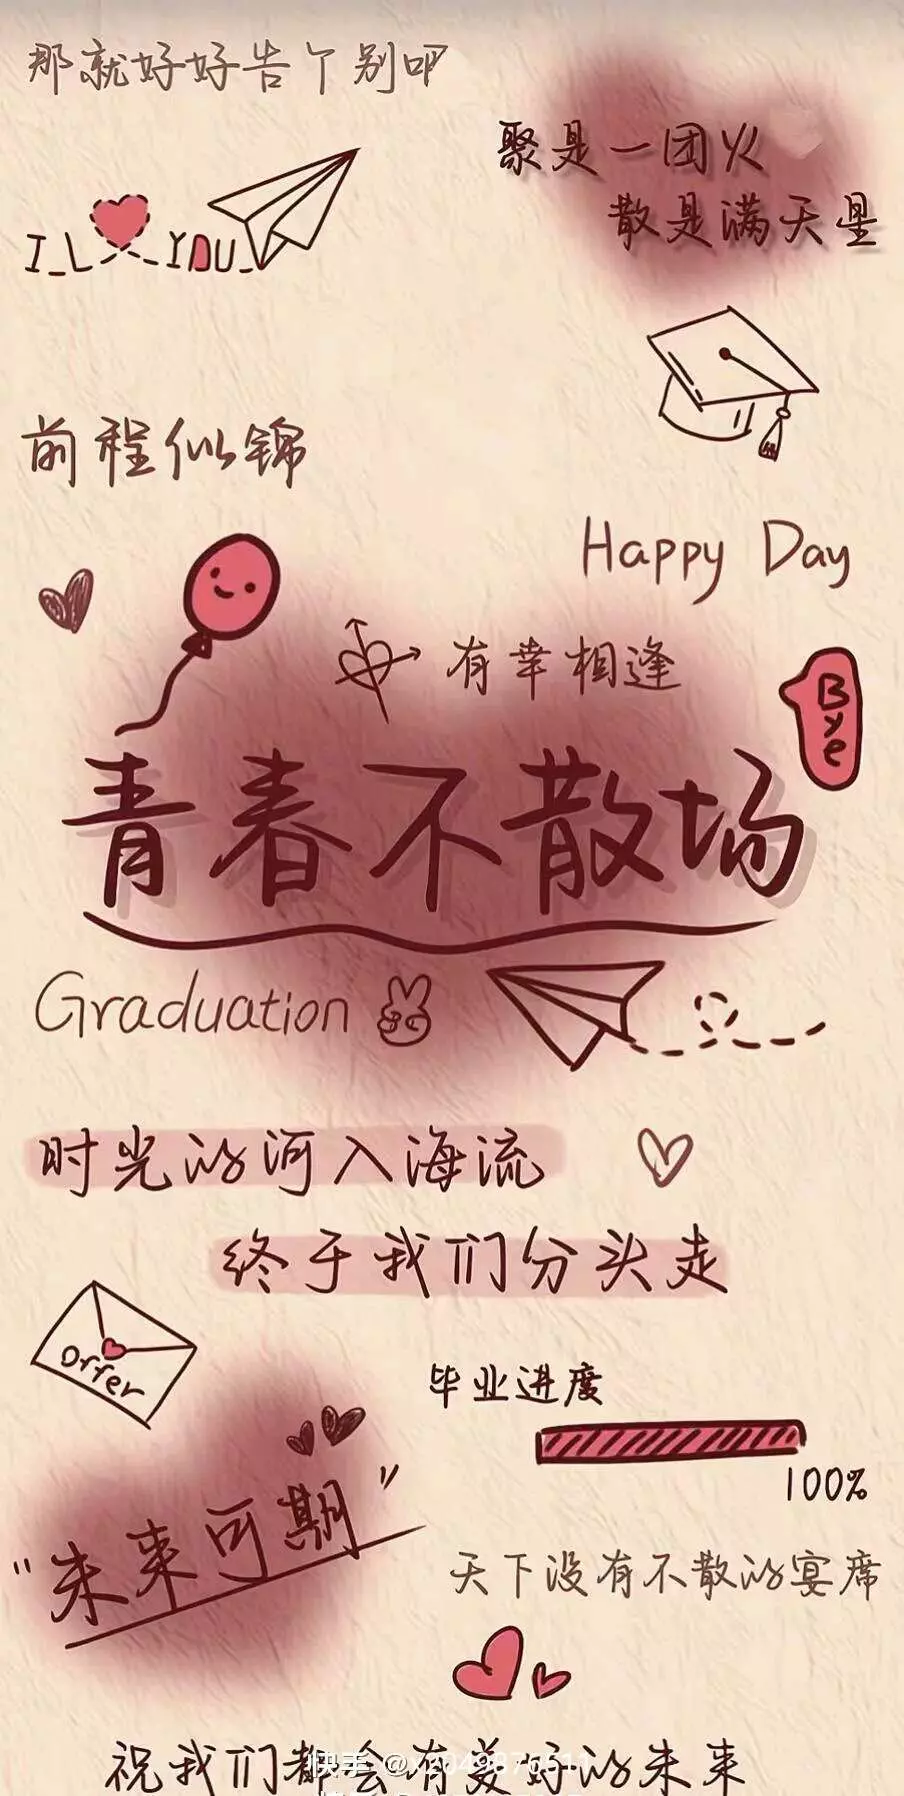 那就好好告个别吧
聚是一团火
散是满天星
I L YOU
前程似锦
Happy Day
有幸相逢
Bye
青春不散场
Graduation
时光的河入海流
终于我们分头走
offer
毕业进度
100%
"未来可期"
天下没有不散的宴席
祝我们都会有美好的未来
快手 @x2049876511